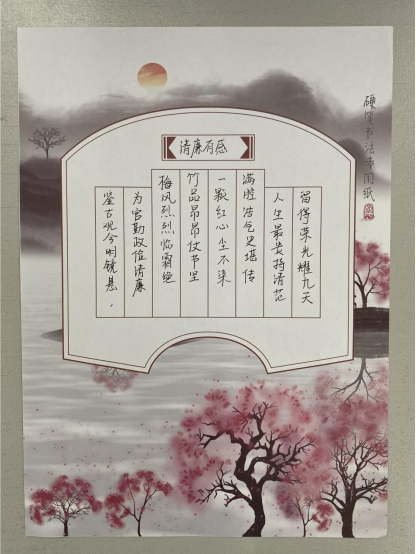 清廉有感
鉴古观今明镜悬，
为官勤政位清廉
梅风烈烈临霜绝
竹品昂昂仗节坚
一颗红心尘不染
满腔浩气足堪传
人生最贵持清范
留得荣光耀九天
硬笔书法专用纸